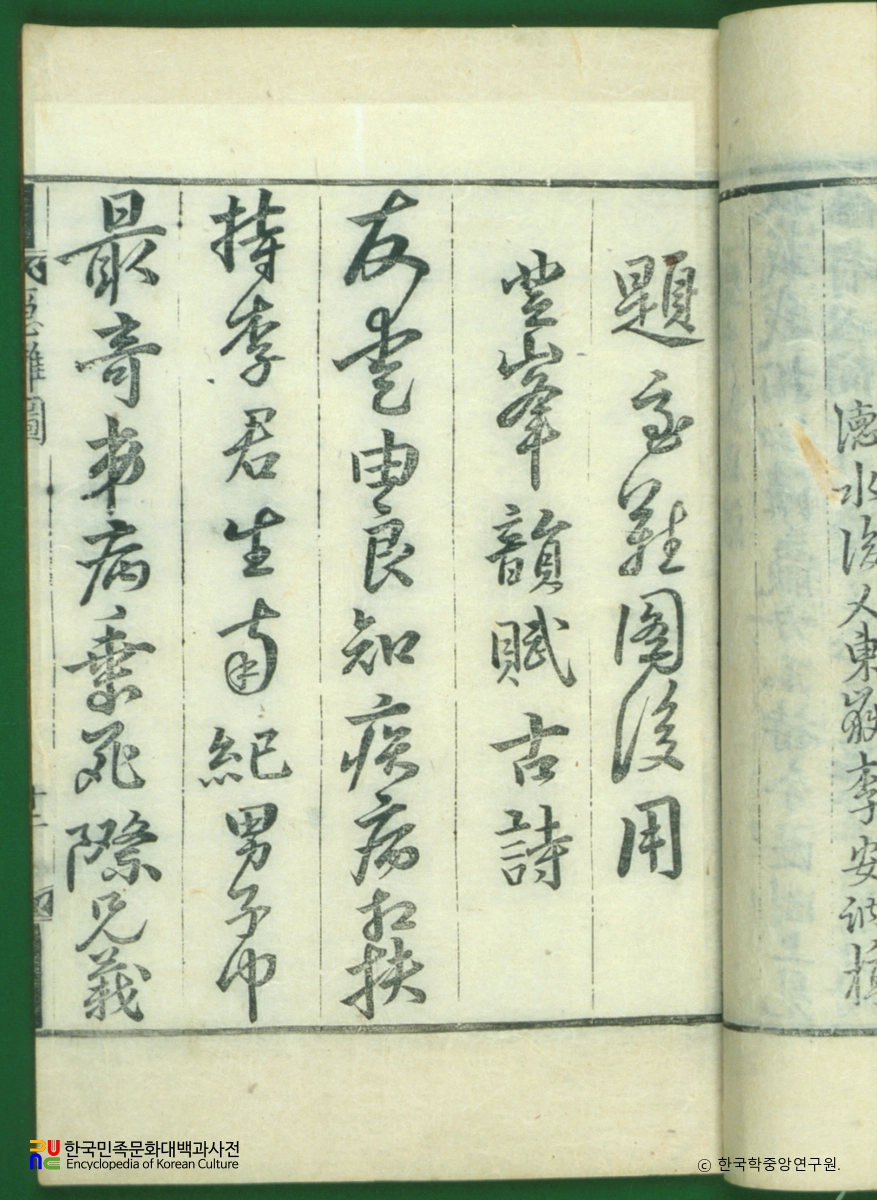 德水後人東嶽李安訥
題急難圖後用
豊峯韻賦古詩
友愛由良知疾病相扶
持李君生南紀男子中
最奇弟病垂死際兄義
急難圖
十二
한국민족문화대백과사전
Encyclopedia of Korean Culture
ⓒ 한국학중앙연구원.